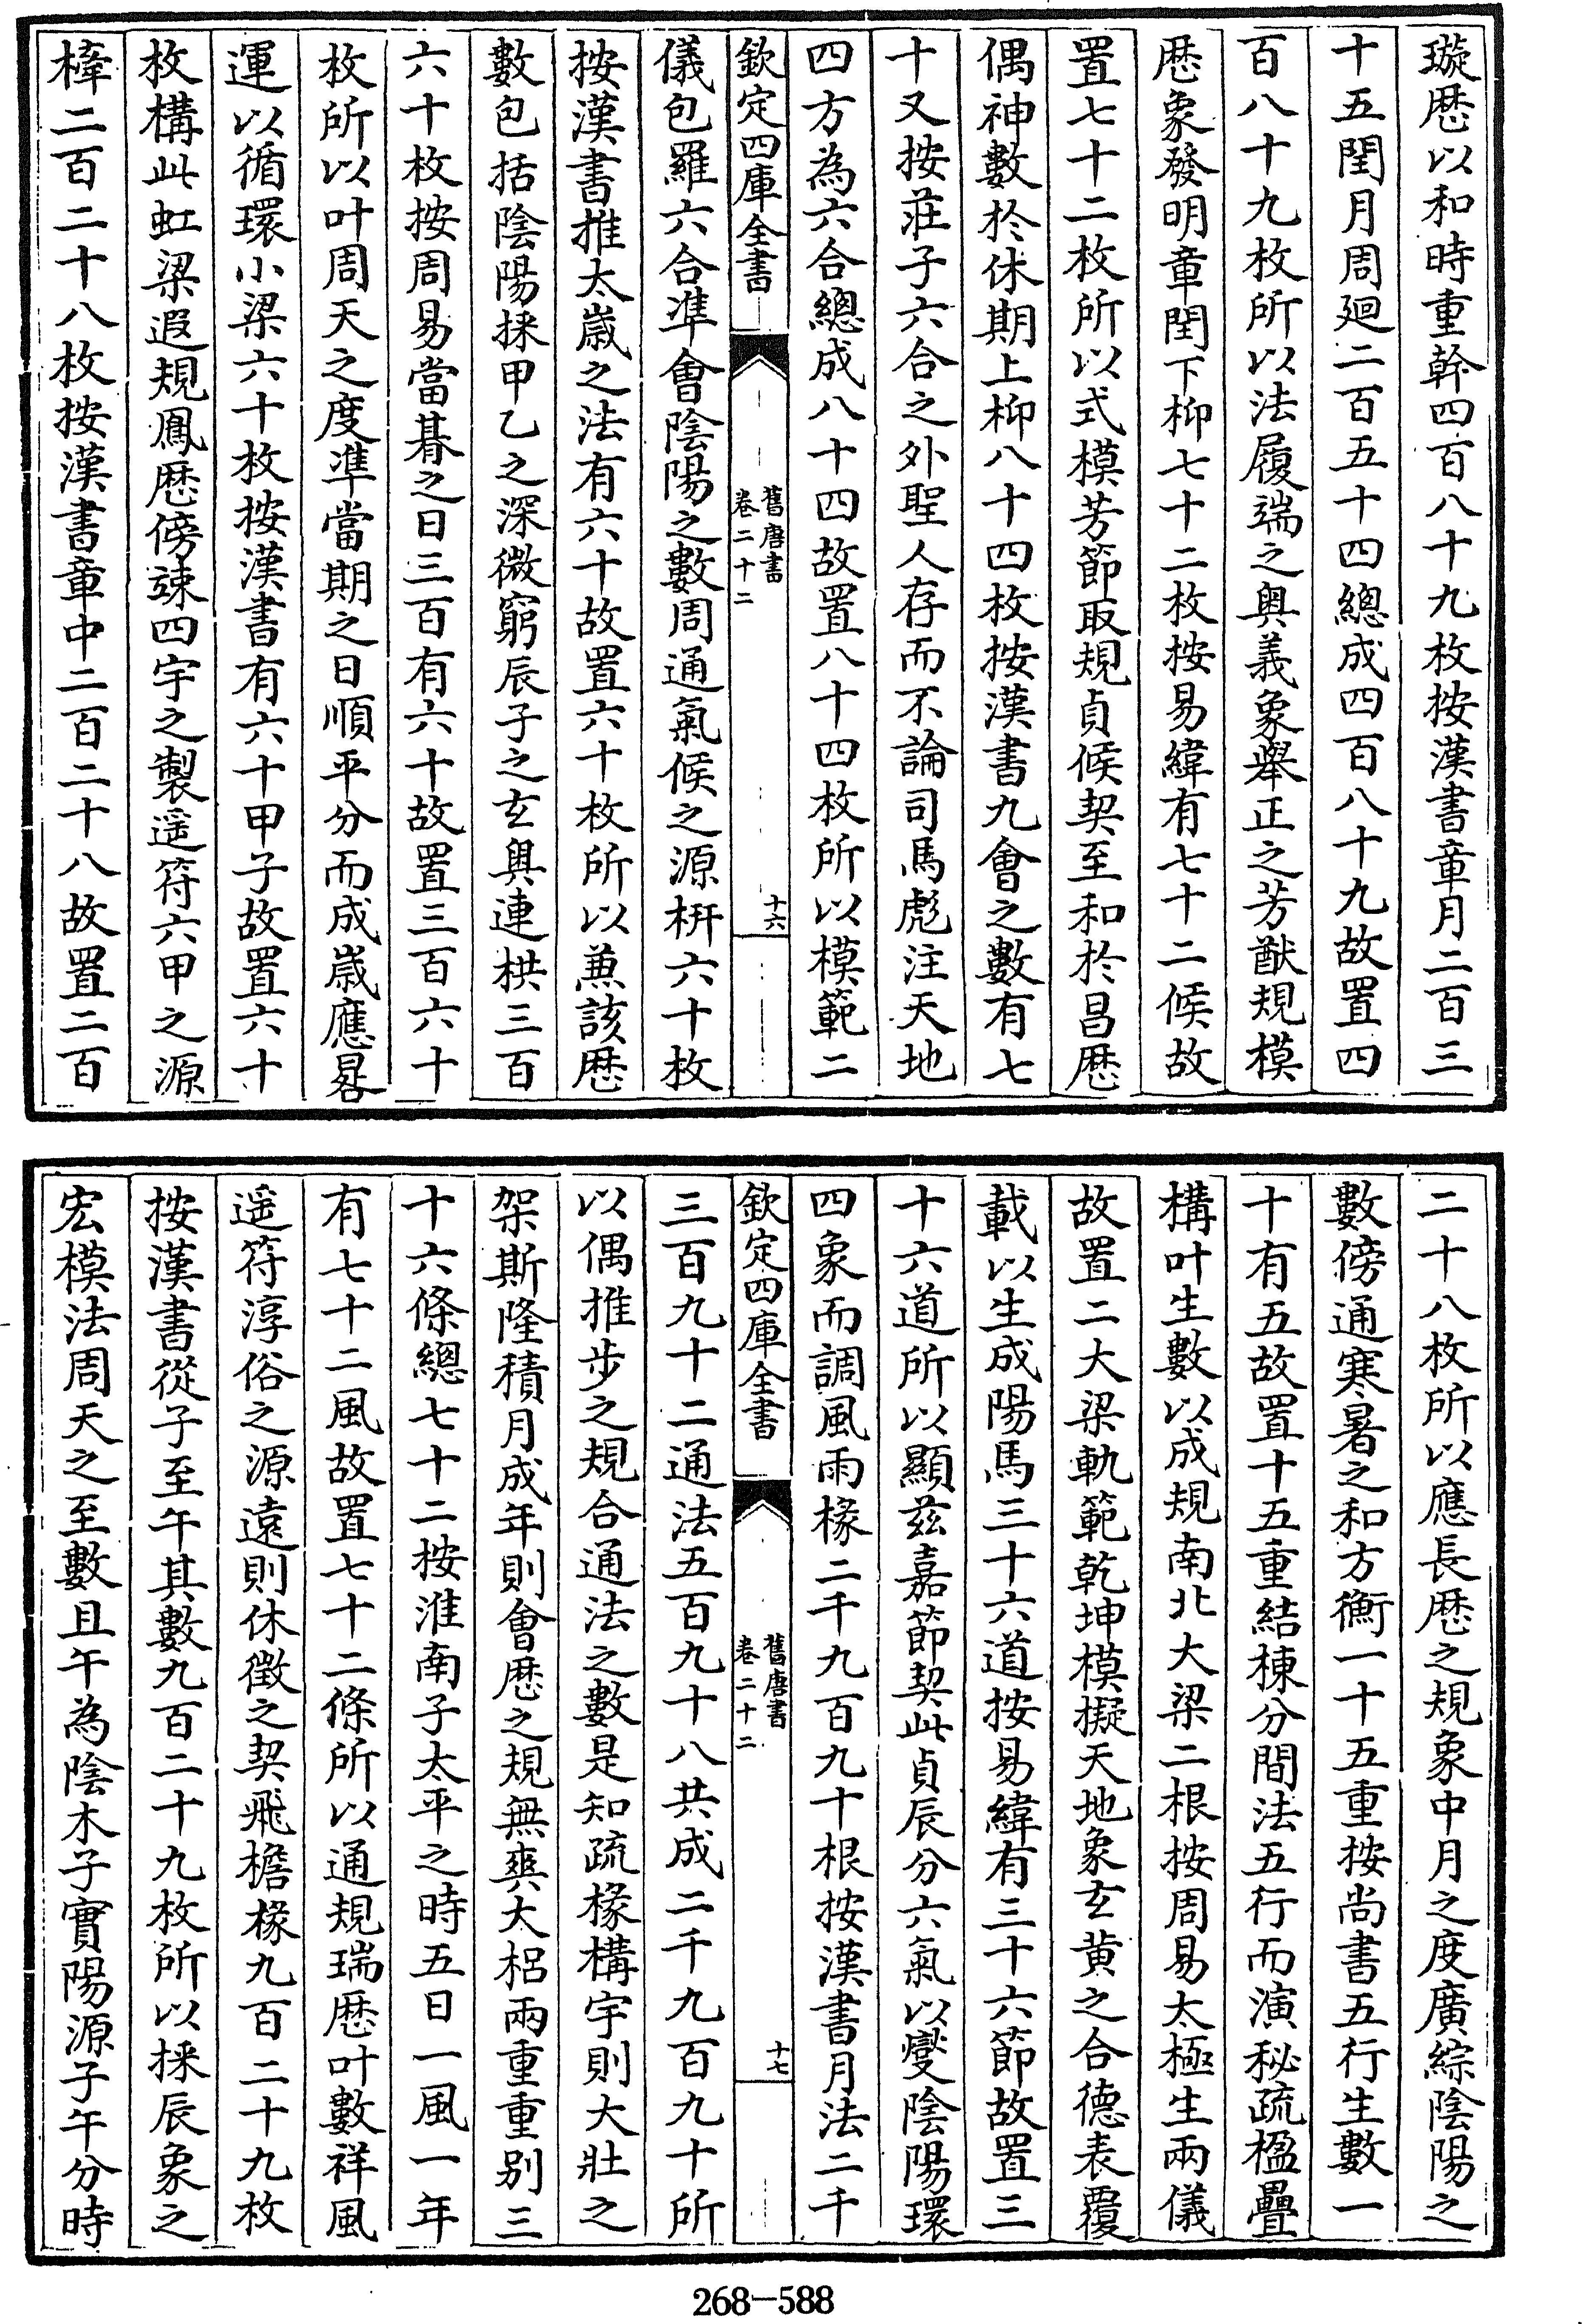 璇厯以和時重幹四百八十九枚按漢書章月二百三
十五閏月周廻二百五十四總成四百八十九故置四
百八十九枚所以法履端之奥義象舉正之芳猷規模
厯象發明章閏下枊七十二枚按易緯有七十二候故
置七十二枚所以式模芳節取規貞候契至和於昌厯
偶神數於休期上枊八十四枚按漢書九會之數有七
十又按莊子六合之外聖人存而不論司馬彪注天地
四方為六合總成八十四故置八十四枚所以模範二
欽定四庫全書
舊唐書
卷二十二
十六
儀包羅六合準會陰陽之數周通氣候之源枅六十枚
按漢書推太嵗之法有六十故置六十枚所以兼該厯
數包括陰陽採甲乙之深微窮辰子之玄奥連栱三百
六十枚按周易當朞之日三百有六十故置三百六十
枚所以叶周天之度準當期之日順平分而成嵗應晷
運以循環小梁六十枚按漢書有六十甲子故置六十
枚構此虹梁遐規鳳厯傍竦四宇之製遥符六甲之源
樟二百二十八枚按漢書章中二百二十八故置二百
二十八枚所以應長厯之規象中月之度廣綜陰陽之
數傍通寒暑之和方衡一十五重按尚書五行生數一
十有五故置十五重結棟分間法五行而演秘疏楹疊
構叶生數以成規南北大梁二根按周易太極生兩儀
故置二大梁軌範乾坤模擬天地象玄黄之合德表覆
載以生成陽馬三十六道按易緯有三十六節故置三
十六道所以顯兹嘉節契此貞辰分六氣以燮陰陽環
四象而調風雨椽二千九百九十根按漢書月法二千
欽定四庫全書
舊唐書
卷二十二
十七
三百九十二通法五百九十八共成二千九百九十所
以偶推步之規合通法之數是知疏椽構宇則大壯之
架斯隆積月成年則會厯之規無爽大梠兩重重别三
十六條總七十二按淮南子太平之時五日一風一年
有七十二風故置七十二條所以通規瑞厯叶數祥風
遥符淳俗之源遠則休徵之契飛檐椽九百二十九枚
按漢書從子至午其數九百二十九枚所以採辰象之
宏模法周天之至數且午為陰木子實陽源子午分時
268-588